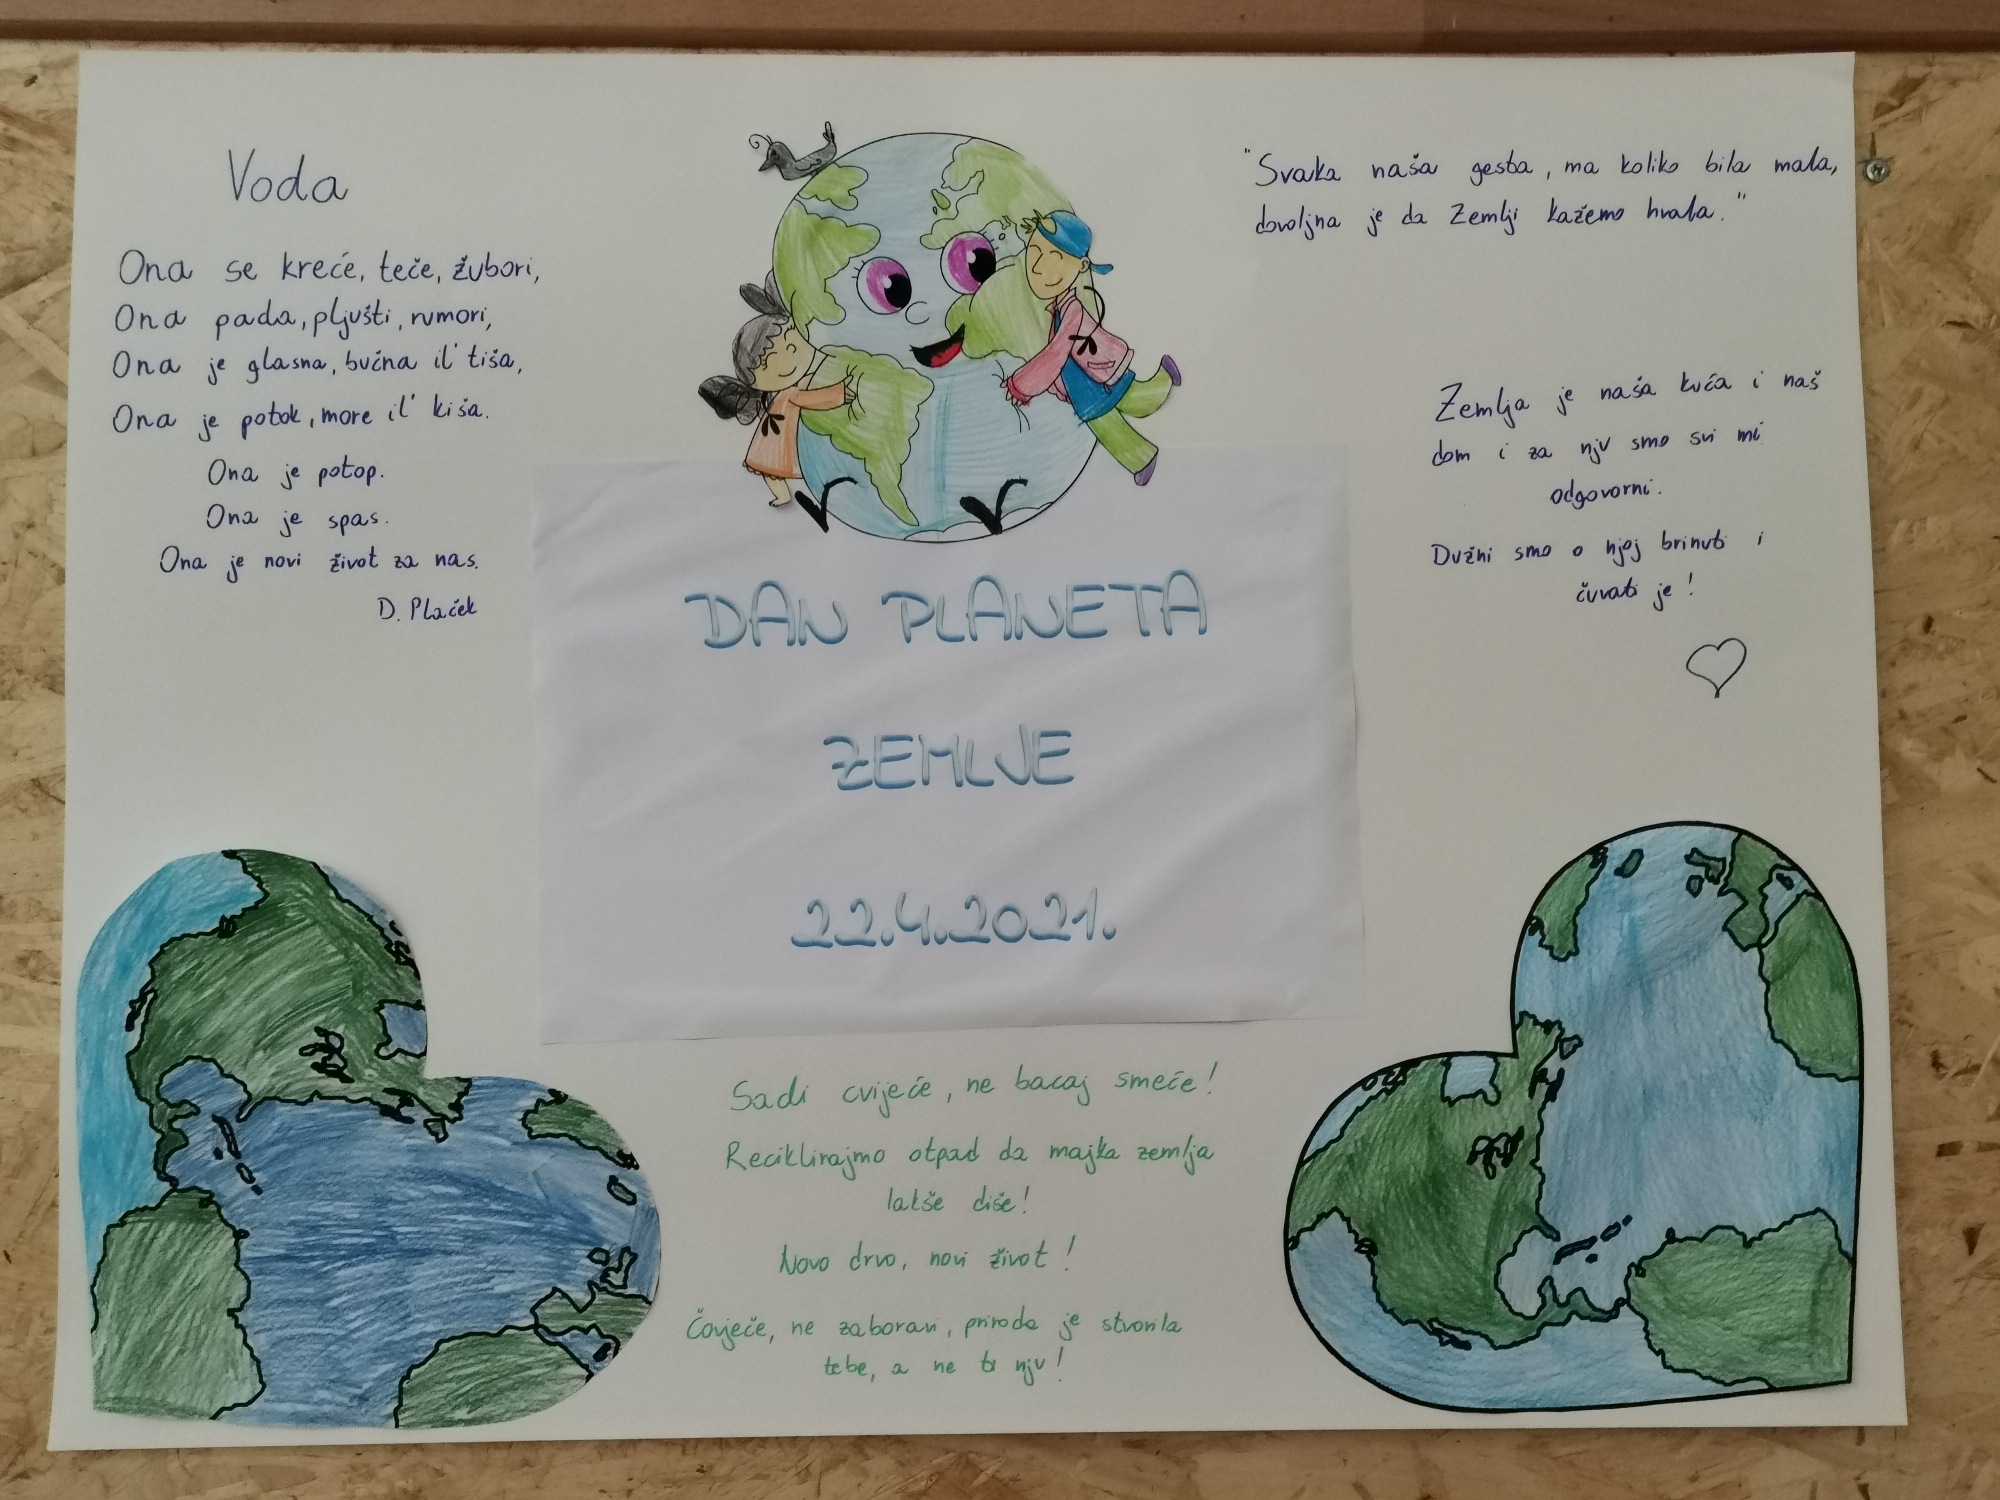 Voda
Ona se kreće, teče, žubori,
Ona pada, pljušti, rumori,
Ona je glasna, bučna il' tiša,
Ona je potok, more il' kiša.
Ona je potop.
Ona je spas.
Ona je novi život za nas.
D. Plaček
"Svaka naša gesta, ma koliko bila mala,
dovoljna je da Zemlji kažemo hvala."
Zemlja je naša kuća i naš
dom i za nju smo svi mi
odgovorni.
Dužni smo o njoj brinuti i
čuvati je!
DAN PLANETA
ZEMLJE
22.4.2021.
Sadi cvijeće, ne bacaj smeće!
Reciklirajmo otpad da majka zemlja
lakše diše!
Novo drvo, novi život!
Čovječe, ne zaboravi, priroda je stvorila
tebe, a ne ti nju!